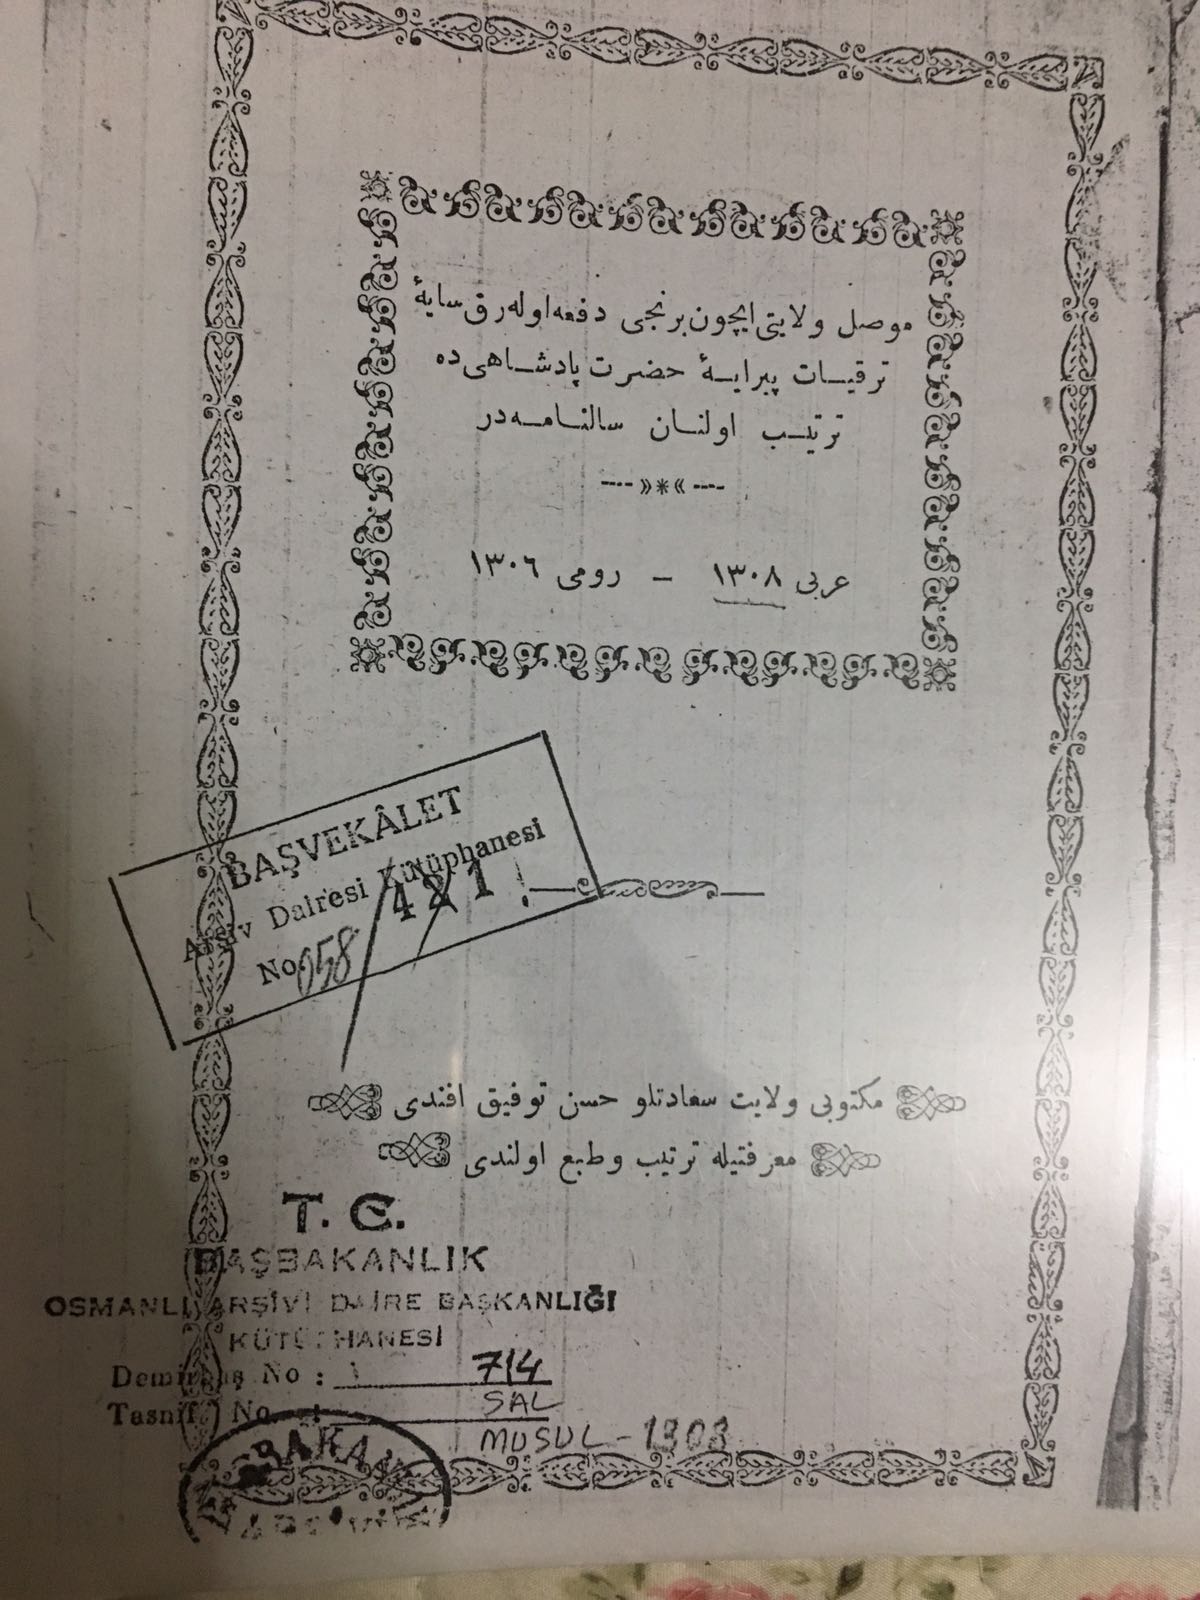 موصل ولايتى ايچون برنجى دفعه اوله رق سايهٔ
ترقيات پيرايهٔ حضرت پادشاهى ده
ترتيب اولنان سالنامه در
عربى ١٣٠٨ — رومى ١٣٠٦
BAŞVEKÂLET
Arşiv Dairesi Kütüphanesi
421
No 058
مكتوبى ولايت سعادتلو حسن توفيق افندى
معرفتيله ترتيب وطبع اولندى
T. C.
BAŞBAKANLIK
OSMANLI ARŞİVİ DAİRE BAŞKANLIĞI
KÜTÜPHANESİ
Demirbaş No : 714
Tasnif No. : SAL
MUSUL - 1308